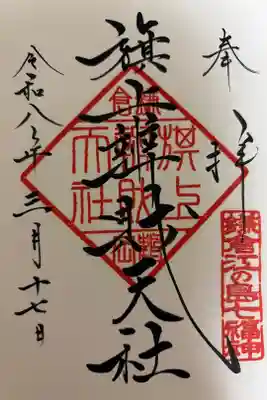 奉拝
鎌倉江の島七福神
旗上弁財天社
鎌倉
旗上
弁財
天社
令和八年三月十七日